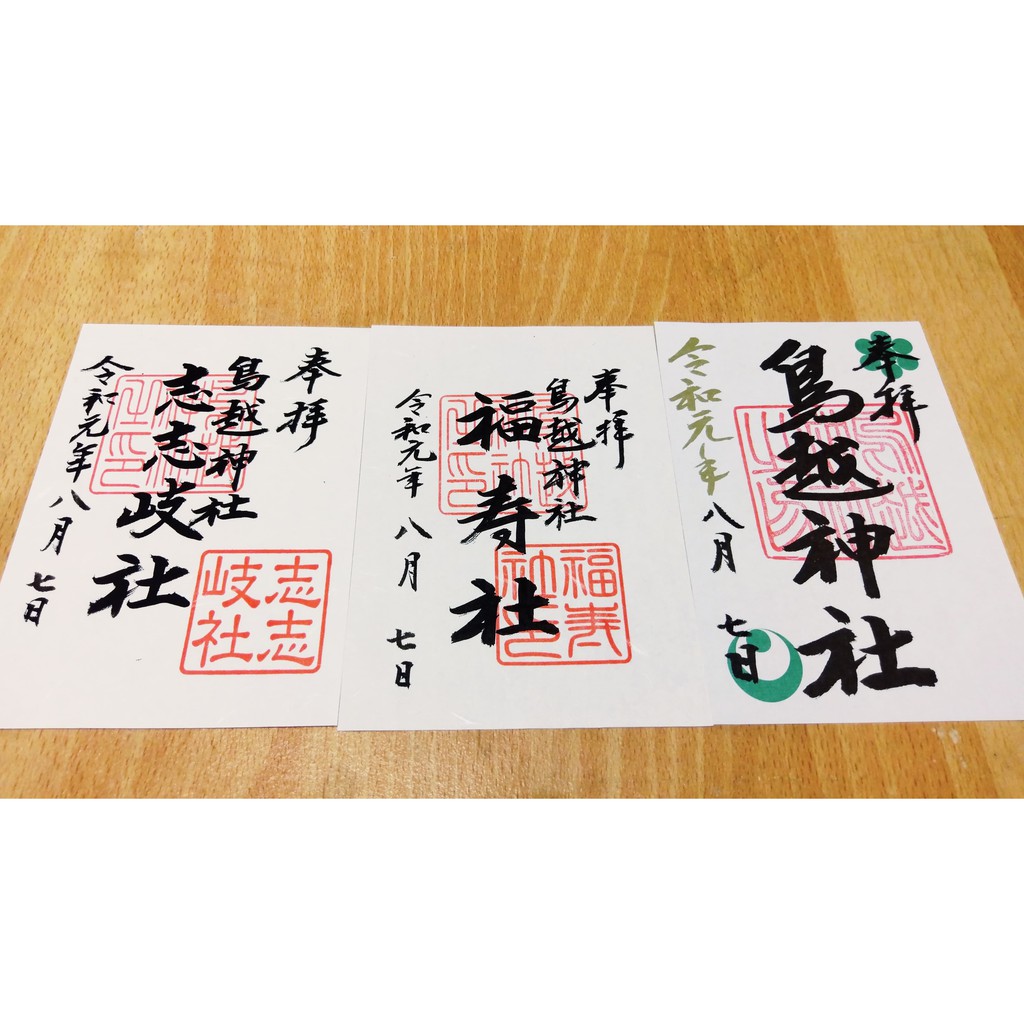 奉拝
鳥越神社
志志岐社
令和元年八月七日
志志
岐社
奉拝
鳥越神社
福寿社
令和元年八月七日
福寿
奉拝
鳥越神社
令和元年八月七日